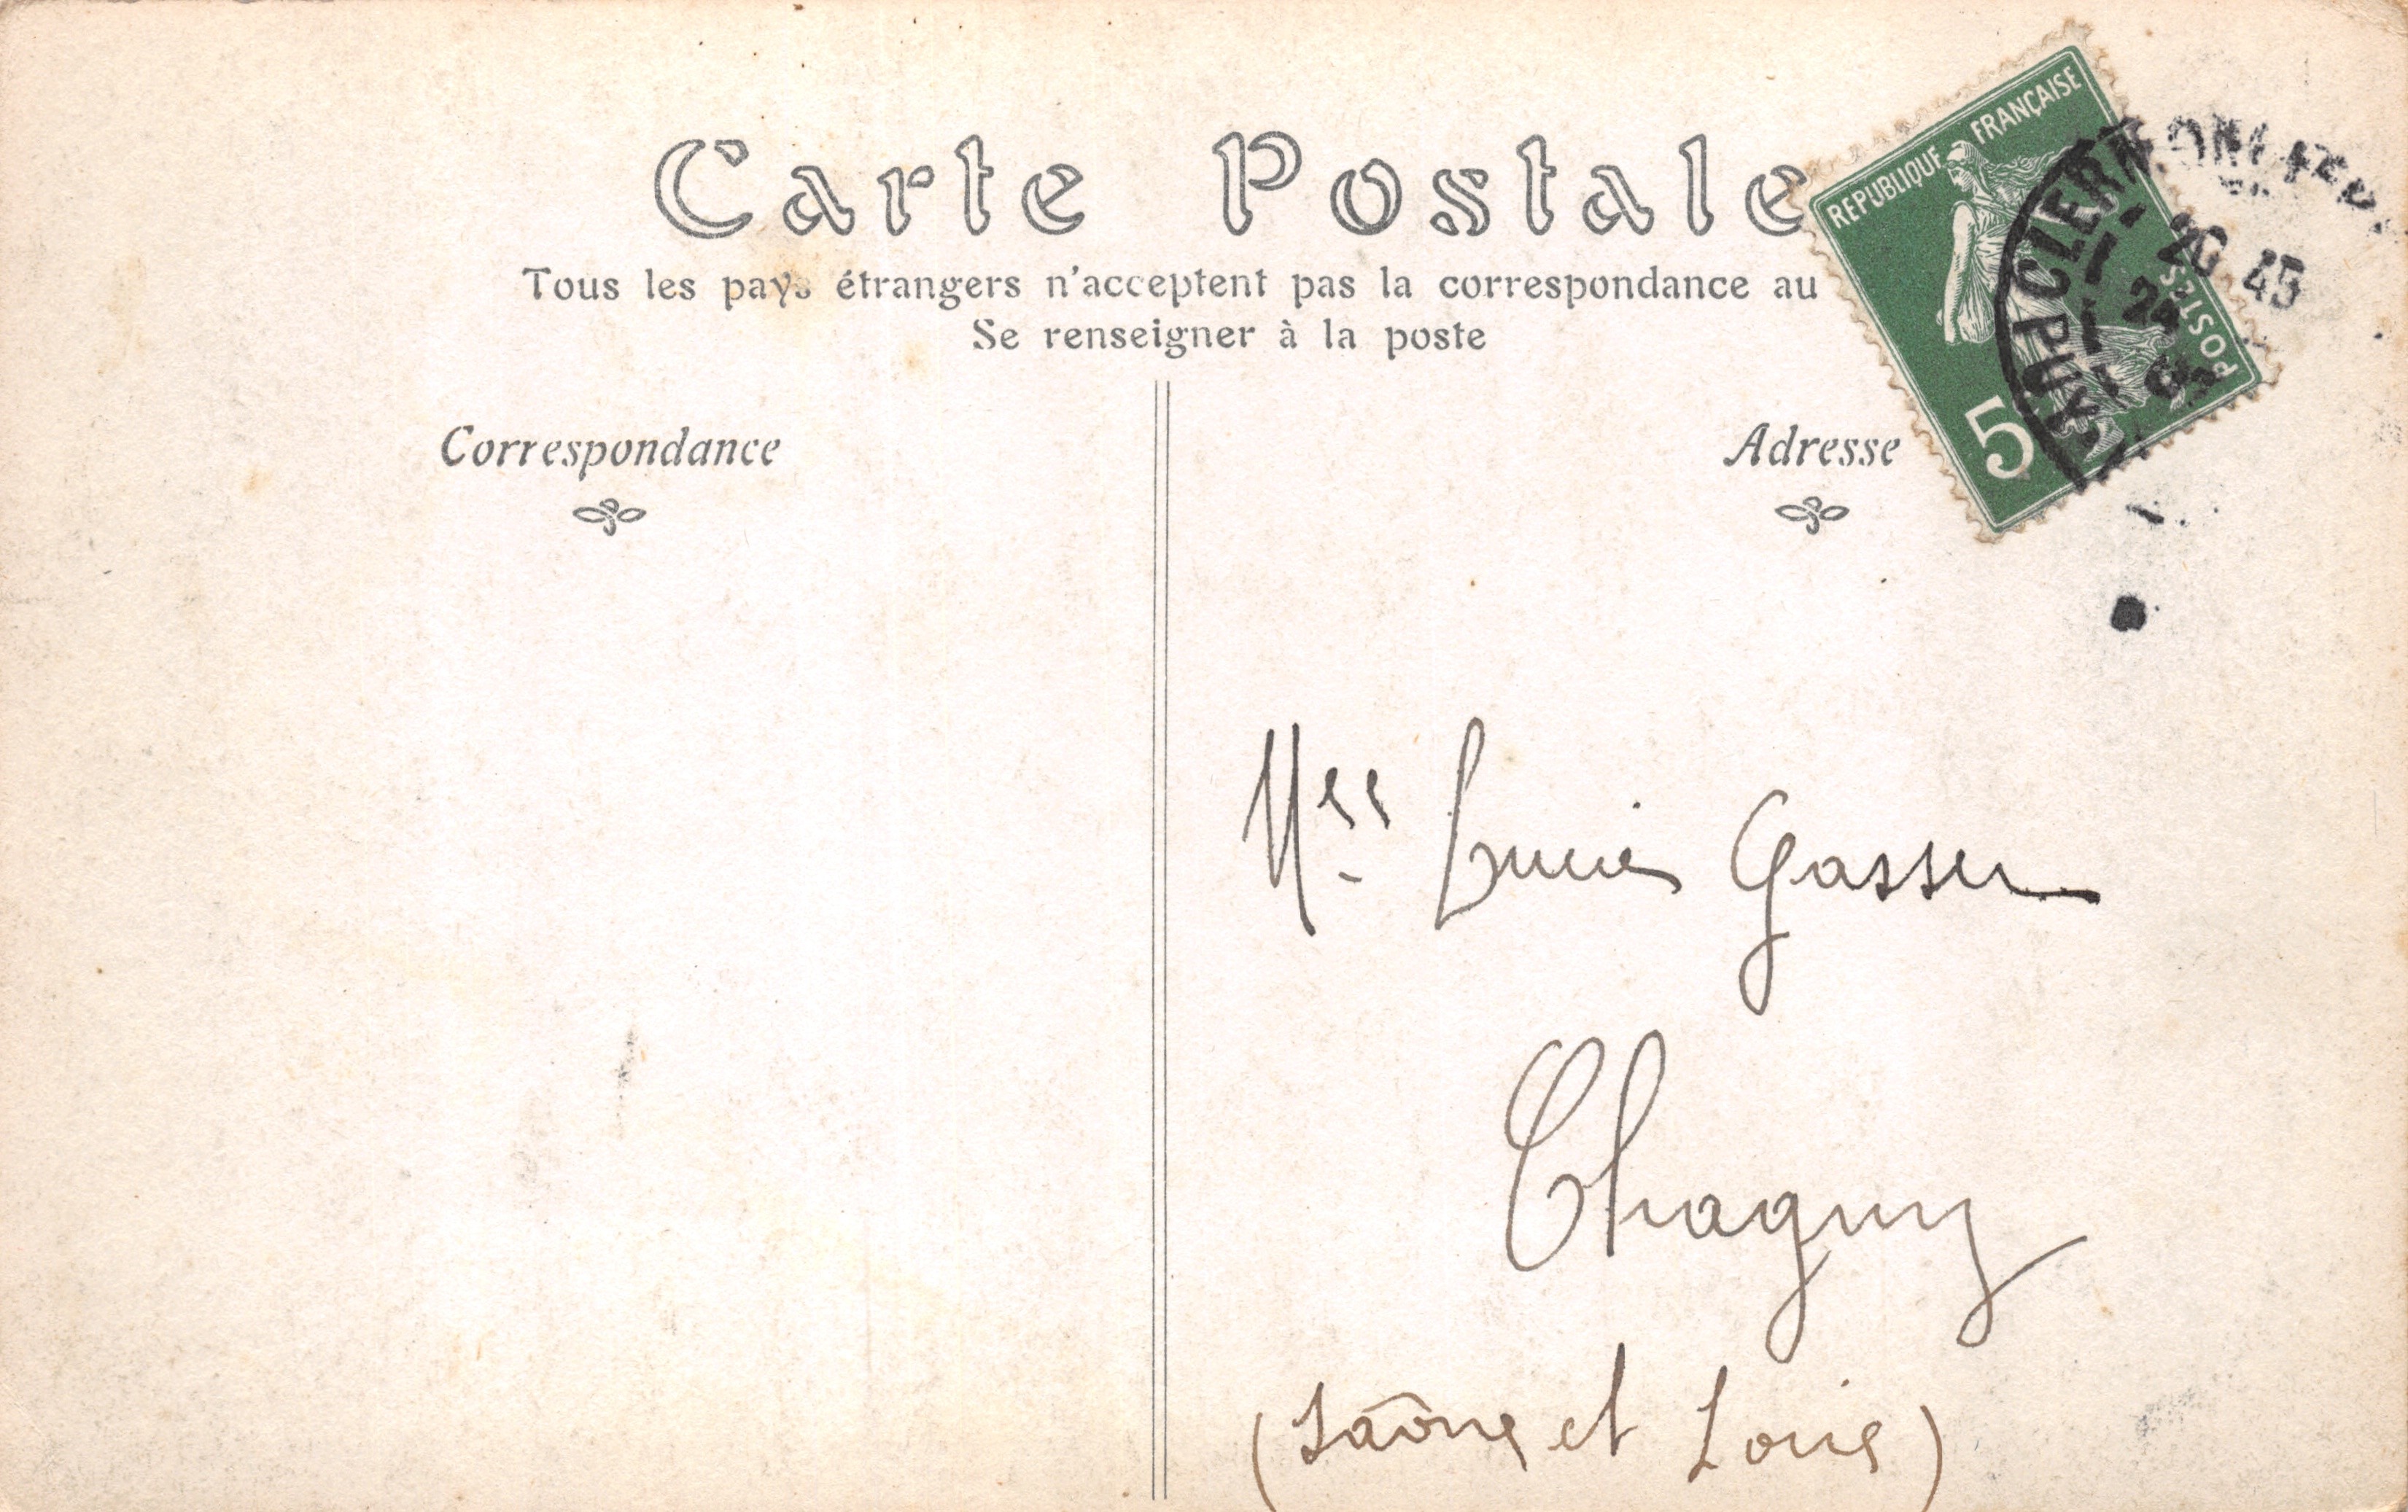 Carte Postale
Tous les pays étrangers n'acceptent pas la correspondance au
Se renseigner à la poste
Correspondance
Adresse
REPUBLIQUE FRANÇAISE
POSTES
5
CLERMONT-FERR
20 45
24
PUY
Lucie Gasser
Chagny
(Saône et Loire)